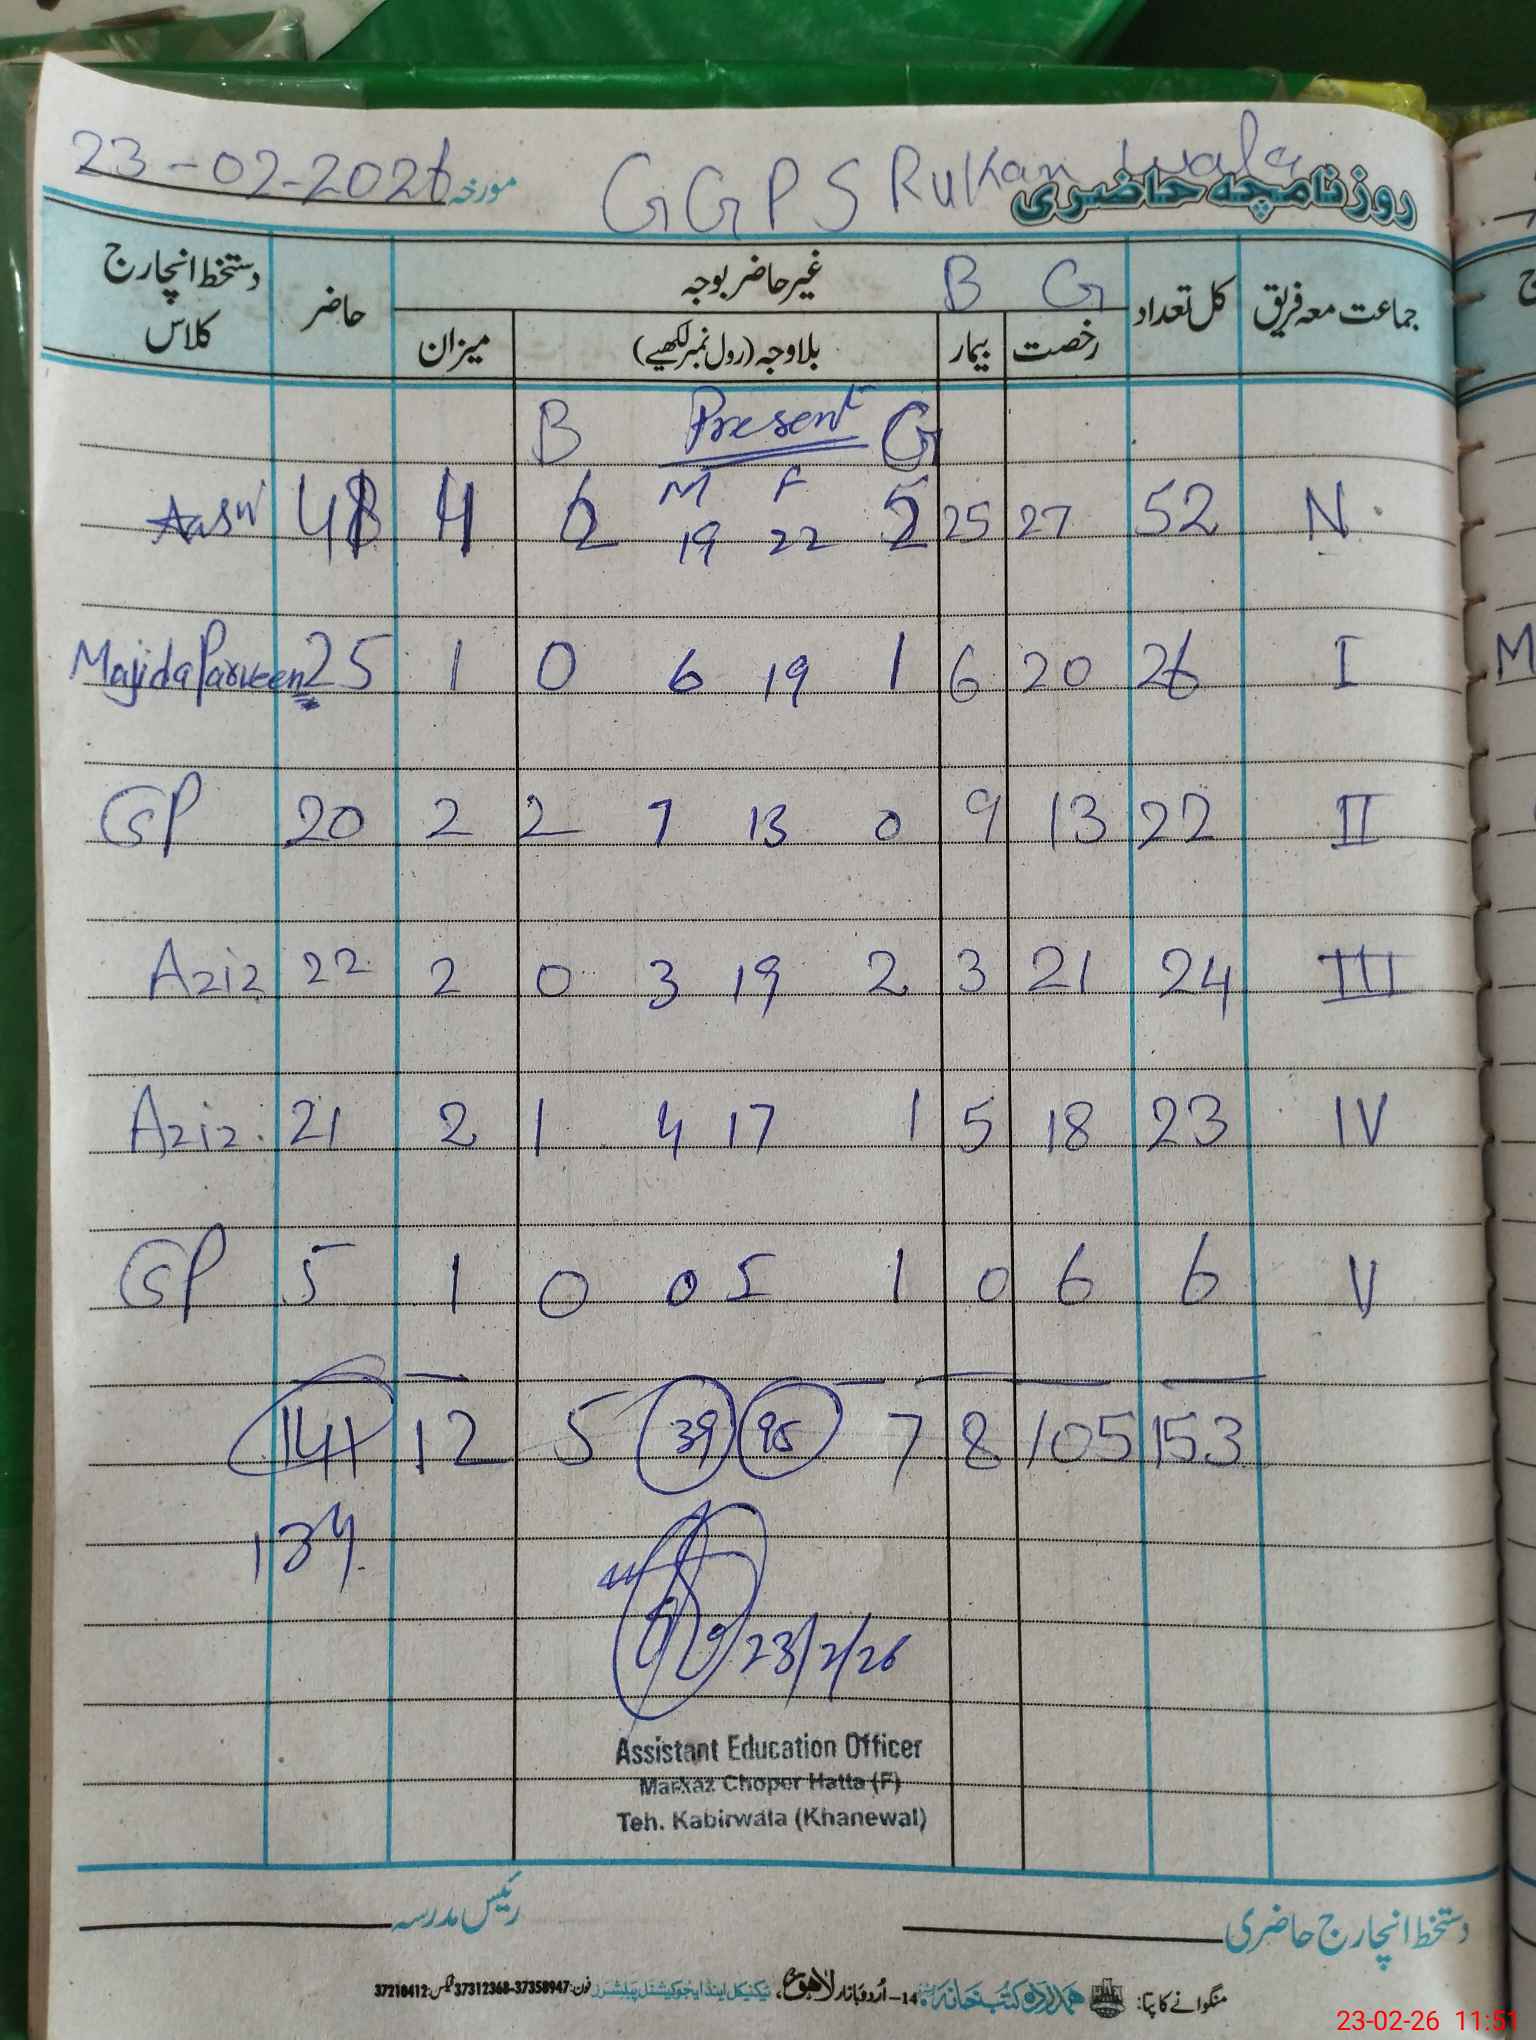 23-02-2026 مورخہ GGPS Rukan wala روزنامچہ حاضری
جماعت معہ فریق کل تعداد G B غیر حاضر بوجہ حاضر دستخط انچارج کلاس
رخصت بیمار بلاوجہ (رول نمبر لکھیے) میزان
B Present G
M F
48 4 2 19 22 25 27 52 N
Majida Parveen 25 1 0 6 19 1 6 20 26 I
GP 20 2 2 7 13 0 9 13 22 II
Aziz 22 2 0 3 19 2 3 21 24 III
Aziz 21 2 1 4 17 1 5 18 23 IV
GP 5 1 0 0 5 1 0 6 6 V
141 12 5 39 95 7 8 105 153
134
23/2/26
Assistant Education Officer
Markaz Choper Hatta (F)
Teh. Kabirwala (Khanewal)
دستخط انچارج حاضری رئیس مدرسہ
منگوانے کا پتا: ہمدرد کتب خانہ 14-اُردو بازار لاہور، ٹیکنیکل اینڈ ایجوکیشنل پبلشرز فون:37358947-37312368 فیکس:37210412
23-02-26 11:51